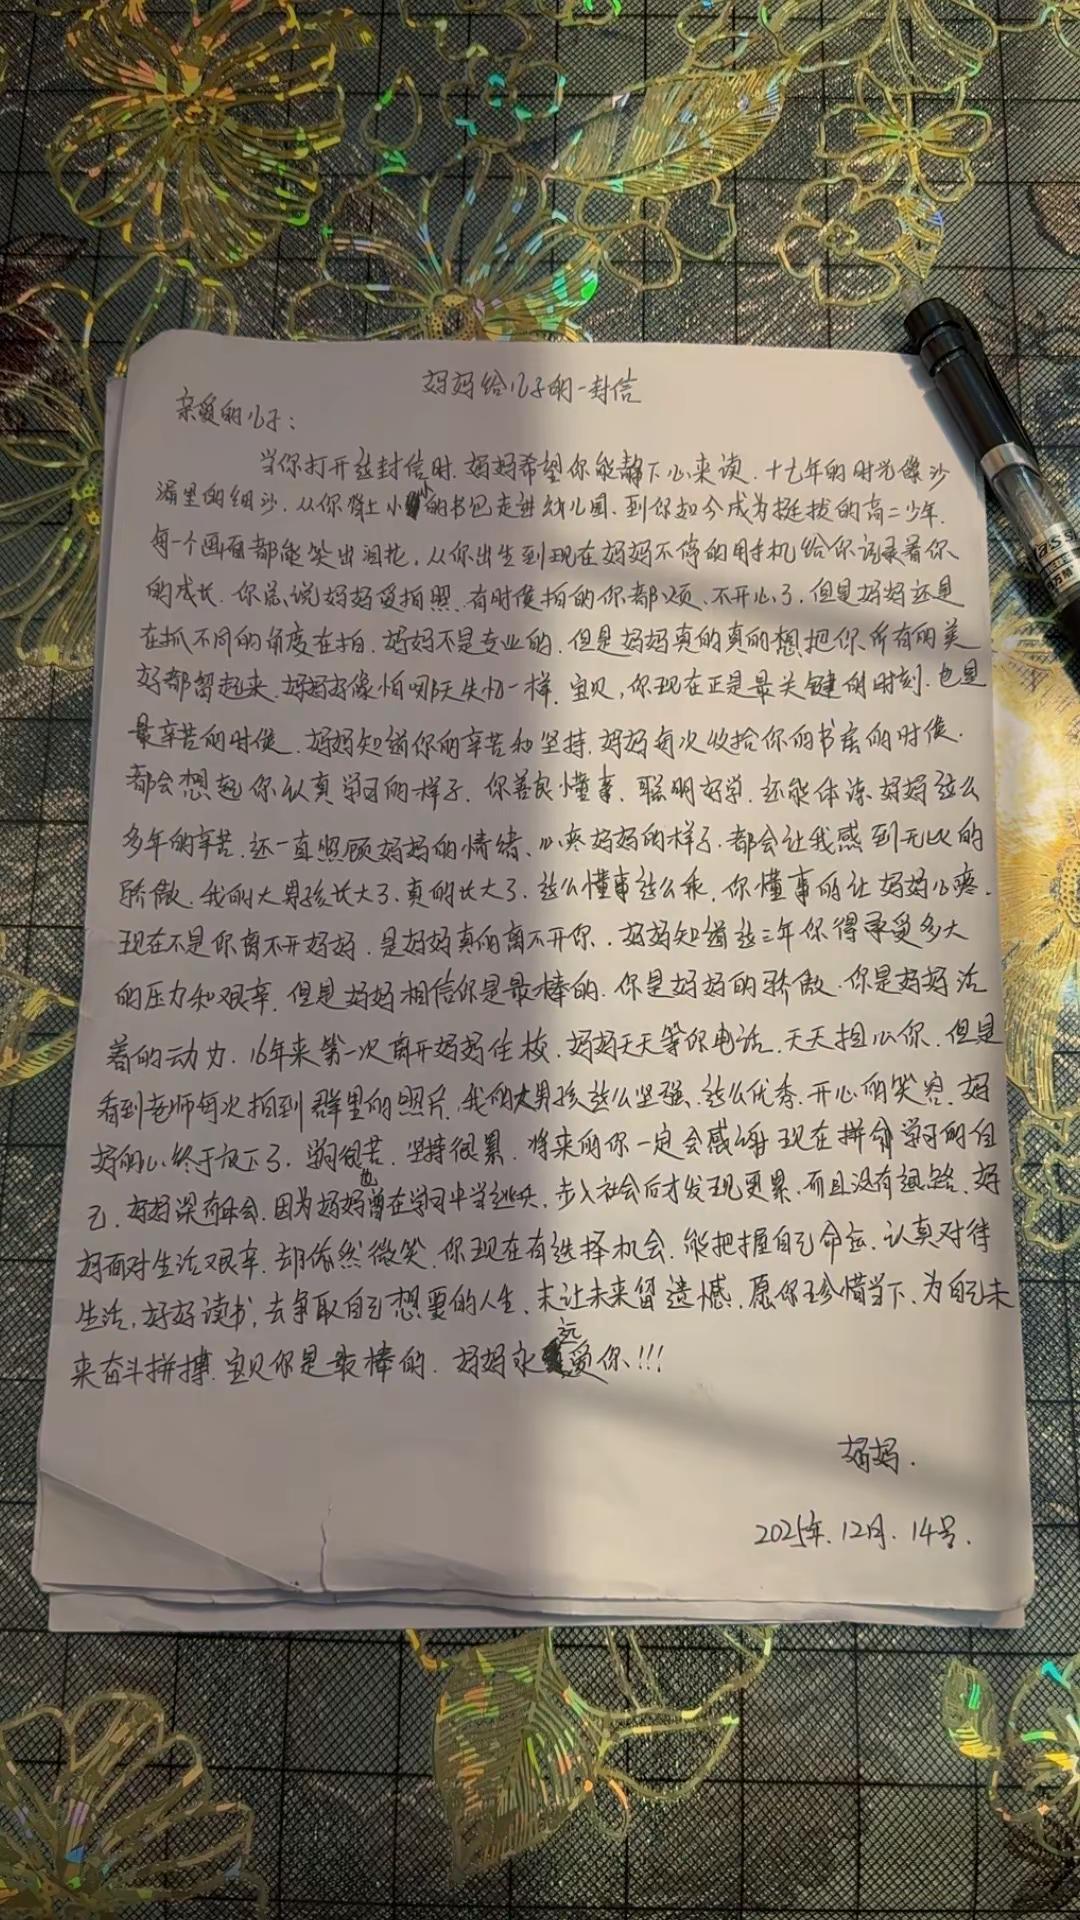 妈妈给儿子的一封信
亲爱的儿子：
当你打开这封信时.妈妈希望你能静下心来读.十七年的时光像沙
漏里的细沙.从你背上小小的书包走进幼儿园.到你如今成为挺拔的高二少年.
每一个画面都能笑出泪花,从你出生到现在妈妈不停的用手机给你记录着你
的成长.你总说妈妈爱拍照.有时候拍的你都烦、不开心了.但是妈妈还是
在抓不同的角度在拍.妈妈不是专业的.但是妈妈真的真的想把你所有的美
好都留起来.妈妈好像怕哪天失忆一样.宝贝,你现在正是最关键的时刻.也是
最辛苦的时候.妈妈知道你的辛苦和坚持.妈妈每次收拾你的书房的时候.
都会想起你认真学习的样子.你善良懂事、聪明好学.还能体谅妈妈这么
多年的辛苦.还一直照顾妈妈的情绪、心疼妈妈的样子.都会让我感到无比的
骄傲.我的大男孩长大了.真的长大了.这么懂事这么乖.你懂事的让妈妈心疼.
现在不是你离不开妈妈.是妈妈真的离不开你.妈妈知道这三年你得承受多大
的压力和艰辛.但是妈妈相信你是最棒的.你是妈妈的骄傲.你是妈妈活
着的动力.16年来第一次离开妈妈住校.妈妈天天等你电话.天天担心你.但是
看到老师每次拍到群里的照片.我的大男孩这么坚强.这么优秀.开心的笑容.妈
妈的心终于放下了.学习很苦.坚持很累.将来的你一定会感谢现在拼命学习的自
己.妈妈深有体会.因为妈妈也曾在学习中当逃兵.步入社会后才发现更累.而且没有退路.妈
妈面对生活艰辛.却依然微笑.你现在有选择机会.能把握自己命运.认真对待
生活,好好读书,去争取自己想要的人生.末让未来留遗憾.愿你珍惜当下、为自己未
来奋斗拼搏.宝贝你是最棒的.妈妈永远爱你!!!
妈妈.
2025年.12月.14号.